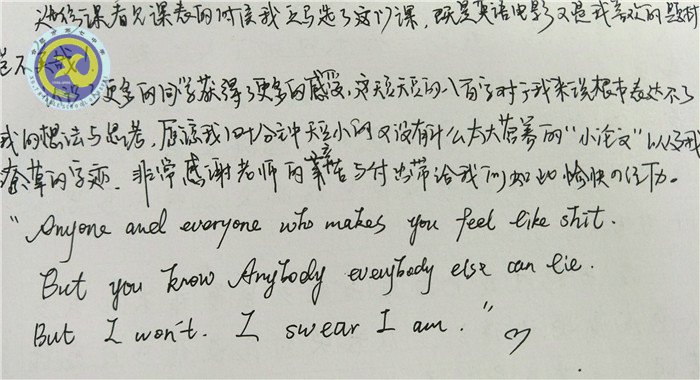 选课看见课表的时候我立马选了这门课，既是英语电影又是我喜欢的题材
岂不美哉！
更多的同学获得了更多的感受，这短短的八百字对于我来说根本表达不了
我的想法与思考，原谅我四十分钟短小的又没有什么太大营养的“小论文”以及我
潦草的字迹，非常感谢老师的辛苦与付出带给我们如此愉快的经历。
"Anyone and everyone who makes you feel like shit.
But you know Anybody everybody else can lie.
But I won't. I swear I am."